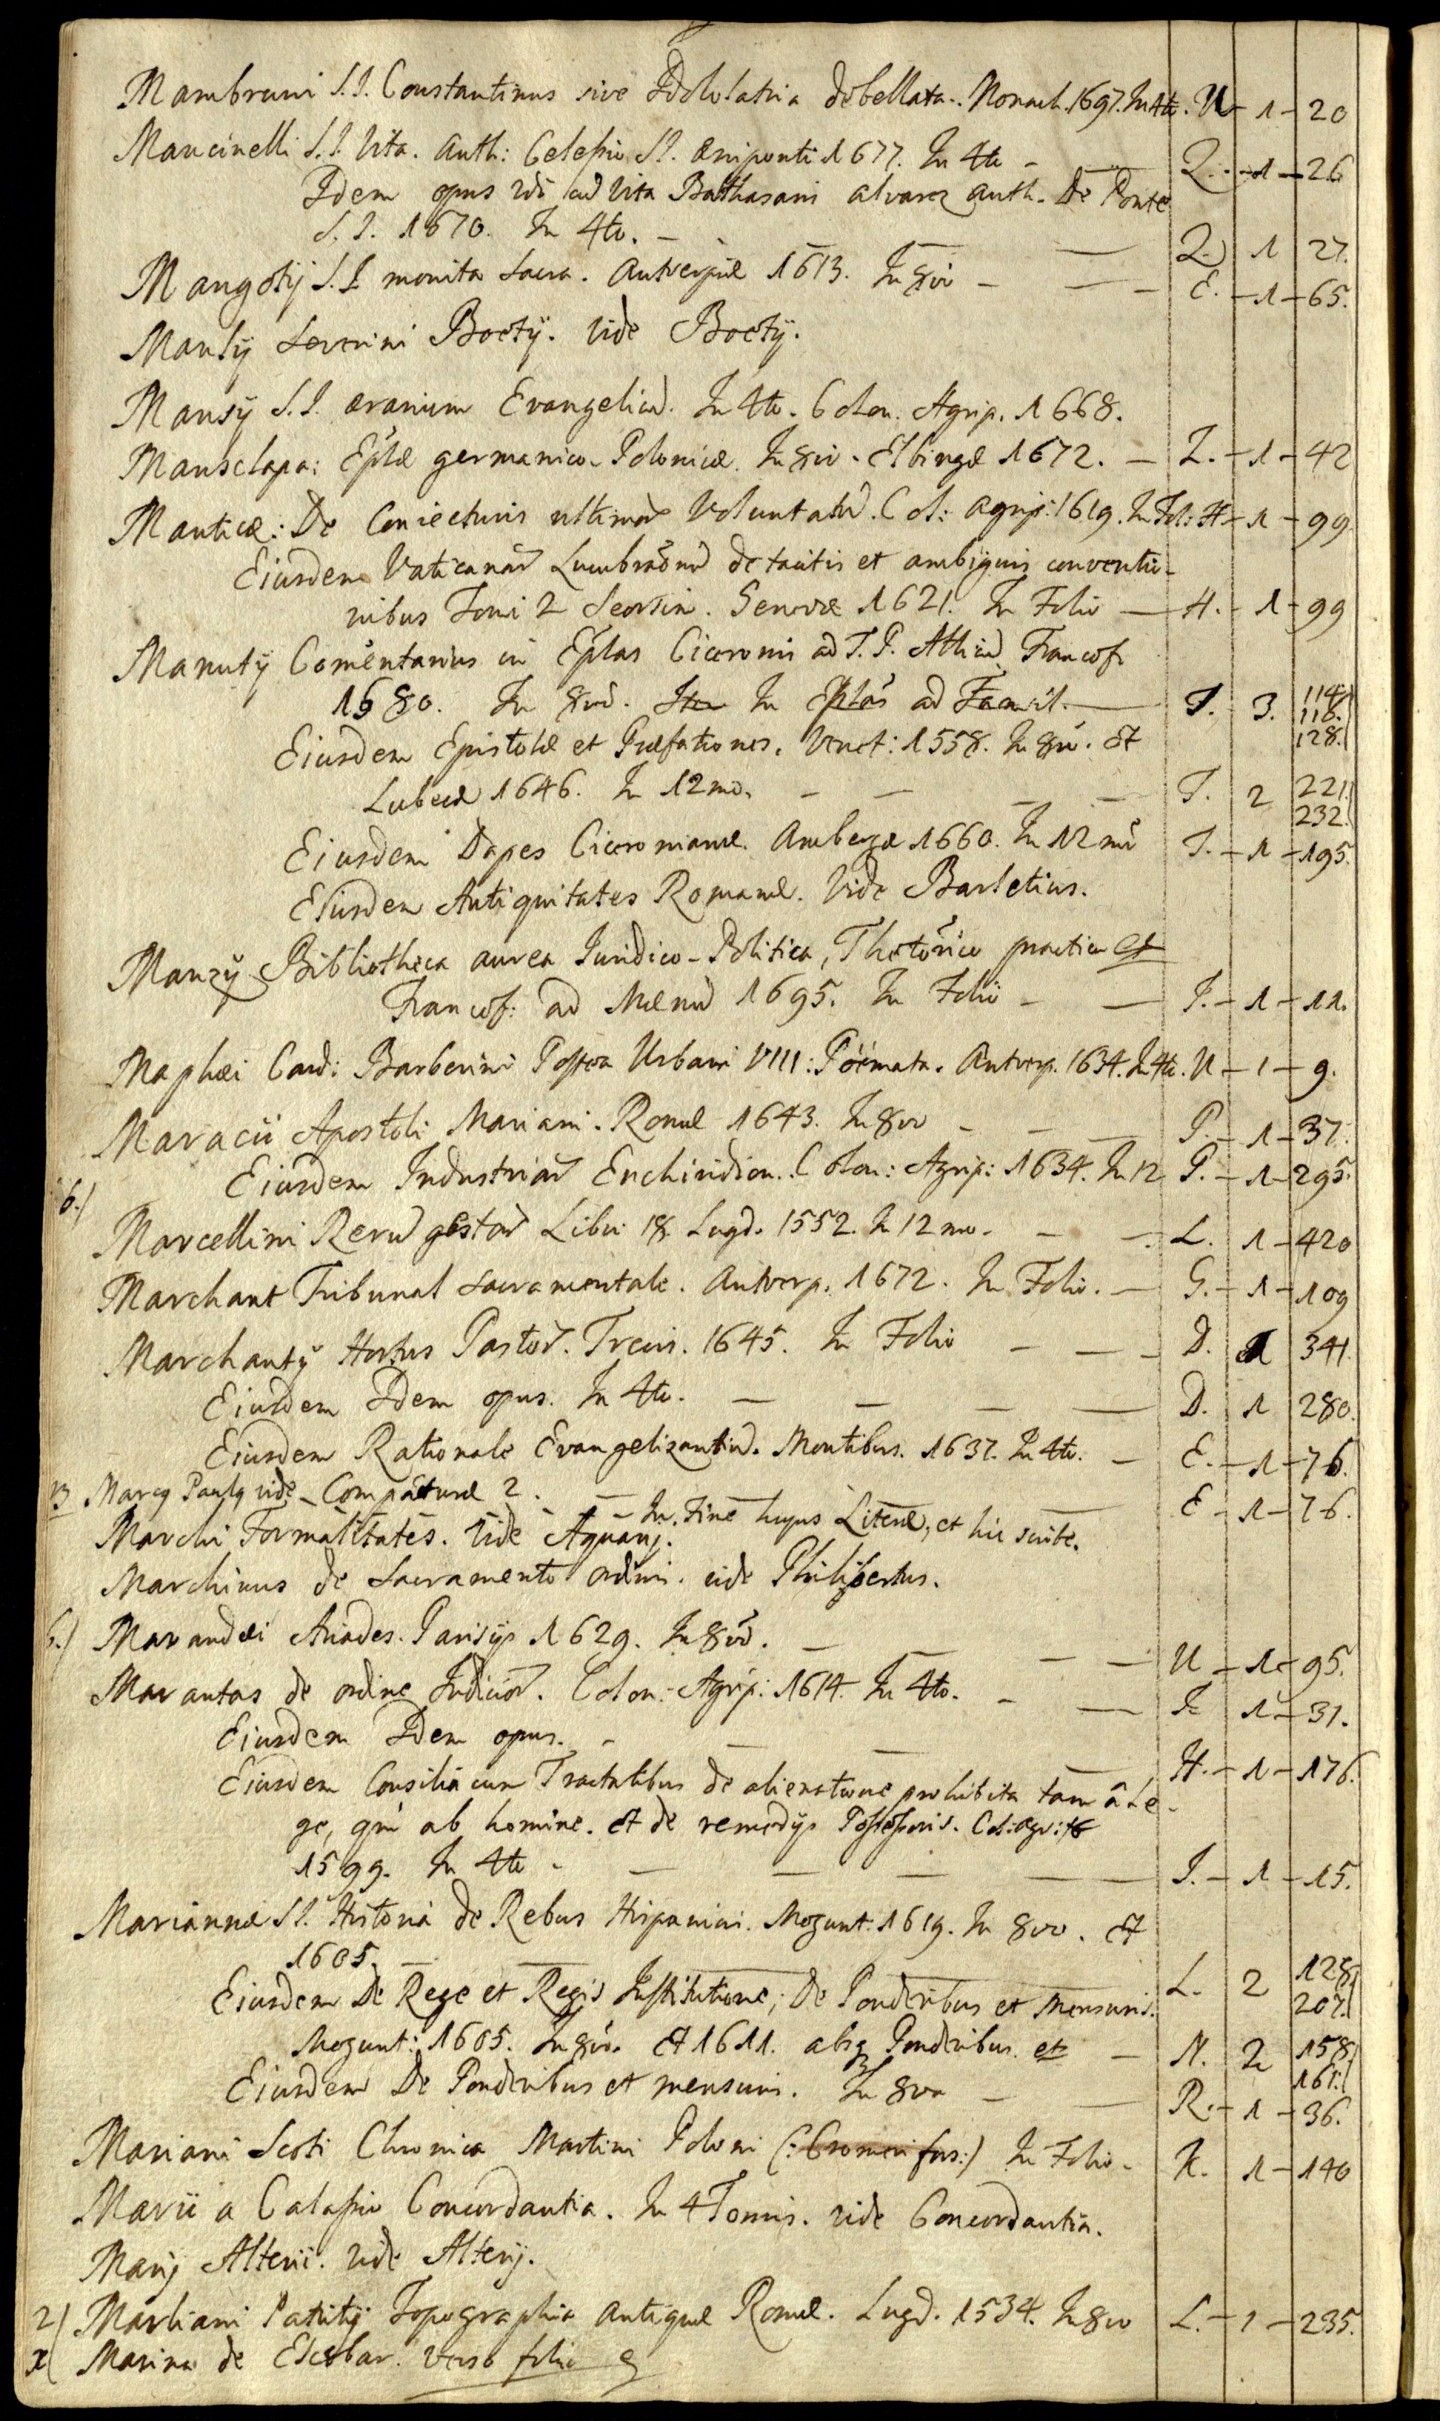 Mambruni S.I. Constantinus sive Idololatria debellata. Monach. 1697. In 4to. U - 1 - 20
Mancinelli S.I. Vita. Auth: Celesio S.I. Œniponti 1677. In 4to - Q. - 1 - 26
Idem opus vide ad vita Balthasari Alvarez auth. De Ponte
S.I. 1670. In 4to. - Q. 1 27.
Mangotij S.I. monita Sacra. Antverpiæ 1613. In 8vo - E. - 1 - 65.
Manlij Severini Boetij. vide Boetij.
Mansij S.I. ærarium Evangelicũ. In 4to. Colon. Agrip. 1668.
Mansclapa: Eplæ germanico-Polonicæ. In 8vo. Elbingæ 1672. - Z. - 1 - 42
Manticæ: De Coniecturis ultimar Voluntatũ. Col: Agrip: 1619. In Fol: H - 1 - 99
Eiusdem Vaticanar Lucubraõnũ de tacitis et ambiguis conventio-
nibus Tomi 2 Seorsim. Genevæ 1621. In Folio - H. - 1 - 99
Manutij Comentarius in Eplas Ciceronis ad T. P. Atticũ Francof.
1580. In 8vo. Item In Eplas ad Famil. - T. 3. 114. 116. 128.
Eiusdem Epistolæ et Præfationes. Venet: 1558. In 8vo. Et
Lubecæ 1646. In 12mo. - T. 2 221. 232.
Eiusdem Dapes Ciceronianæ. Ambergæ 1660. In 12mo T. - 1 - 195.
Eiusdem Antiquitates Romanæ. Vide Barletius.
Manzij Bibliotheca aurea Iuridico-Politica, Theorico practica et
Francof: ad Mænũ 1695. In Folio - I. - 1 - 11.
Maphæi Card: Barberini Postea Urbani VIII: Poëmata. Antverp. 1634. In 4to. U - 1 - 9.
Maracii Apostoli Mariani. Romæ 1643. In 8vo - P. - 1 - 37.
Eiusdem Industriar Enchiridion. Colon: Agrip: 1634. In 12 P. - 1 - 295.
6.)
Marcellini Rerũ gestar Libri 18. Lugd. 1552. In 12mo. - L. 1 - 420
Marchant Tribunal Sacramentale. Antverp. 1672. In Folio. - G. - 1 - 109
Marchantij Hortus Pastor. Trevis. 1645. In Folio - D. 1 341.
Eiusdem Idem opus. In 4to. - D. 1 280.
Eiusdem Rationale Evangelizantiũ. Montibus. 1637. In 4to. - E. - 1 - 76.
13 Marcq Paulq vide Compactura 2. - In Fine hujus Literæ, et hic scribe. E - 1 - 76.
Marchi Formalitates. Vide Aquanj.
Marchinus de Sacramento ordinis. vide Philibertus.
6.) Marandæi Ariades. Parisijs 1629. In 8vo. - U - 1 - 95.
Marantas de ordine Iudicior. Colon: Agrip: 1614. In 4to. - I 1 - 31.
Eiusdem Idem opus. - H. - 1 - 176.
Eiusdem Consilia cum Tractatibus de alienatione prohibita tam â Le-
ge, qm ab homine. et de remedijs Possessoris. Col: Agr:
1599. In 4to - I. - 1 - 15.
Mariannæ S.I. Historia de Rebus Hispanicis. Mogunt: 1619. In 8vo. Et
1605. - L. 2 128. 207.
Eiusdem De Rege et Regis Institutione; De Ponderibus et Mensuris.
Mogunt: 1605. In 8vo. Et 1611. absq Ponderibus et - N. 2 158. 161.
Eiusdem De Ponderibus et mensuris. In 8vo - R. - 1 - 36.
Mariani Scoti Chronica Martini Poloni (: Cromeri fors:) In Folio - K. 1 - 140
Marii a Calasio Concordantia. In 4 Tomis. vide Concordantia.
Marij Alterii. vide Alterij.
2) Marliani Patritij Topographia antiquæ Romæ. Lugd. 1534. In 8vo L. - 1 - 235.
x) Marina de Escobar. verso folio